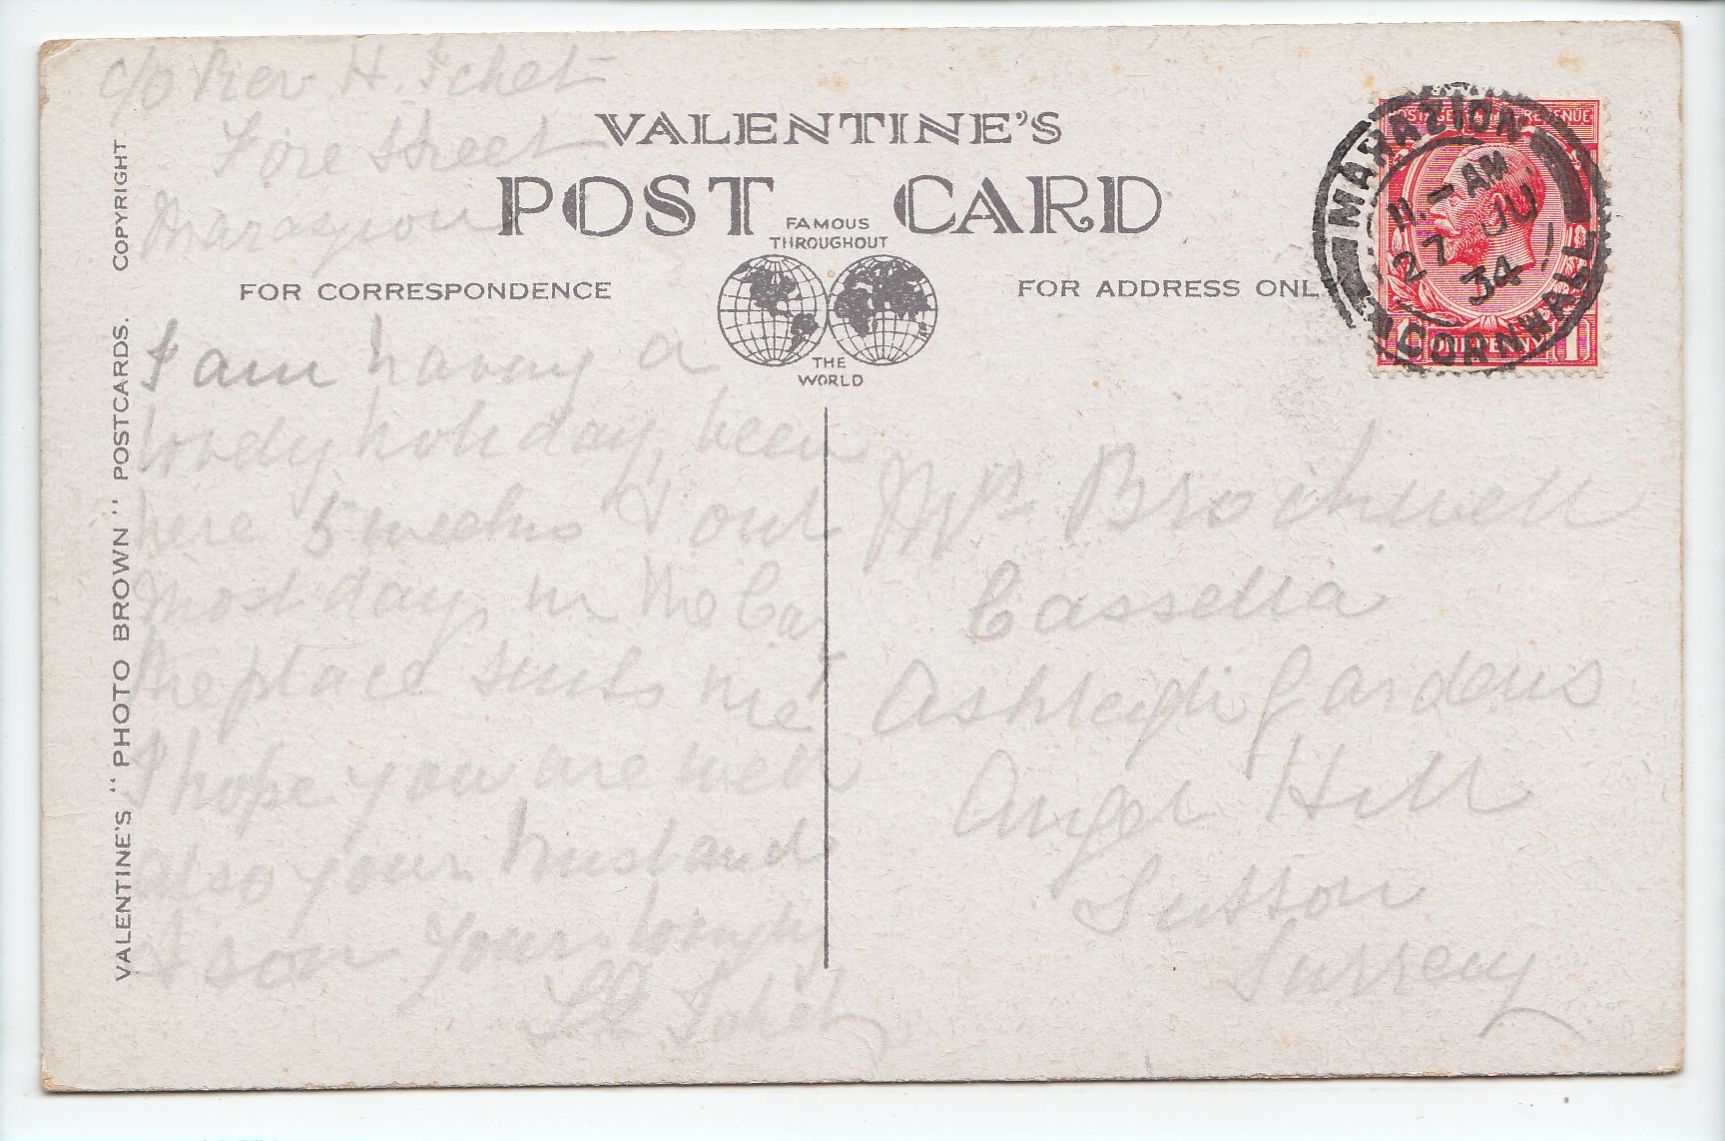 c/o Rev H. Ichet
Fore Street
Marazion
VALENTINE'S
POST CARD
FAMOUS
THROUGHOUT
THE
WORLD
FOR CORRESPONDENCE
I am having a
lovely holiday, been
here 5 weeks & out
most days in the Car
the place suits me
I hope you are well
also your husband
& son Yours
FOR ADDRESS ONLY
Mrs Brockwell
Cassella
Ashleigh Gardens
Angel Hill
Sutton
Surrey
POSTAGE REVENUE
ONE PENNY
1 1
MARAZION
11.- AM
27 JU
34
CORNWALL
VALENTINE'S "PHOTO BROWN" POSTCARDS. COPYRIGHT